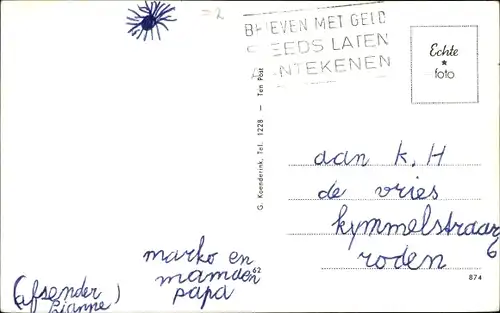 BRIEVEN MET GELD
STEEDS LATEN
AANTEKENEN
Echte
*
foto
G. Koenderink, Tel. 1228 — Ten Post
aan K. H
de vries
kymmelstraat
6
roden
marko en
mamaen
papa
(afsender
Lianne)
62
874